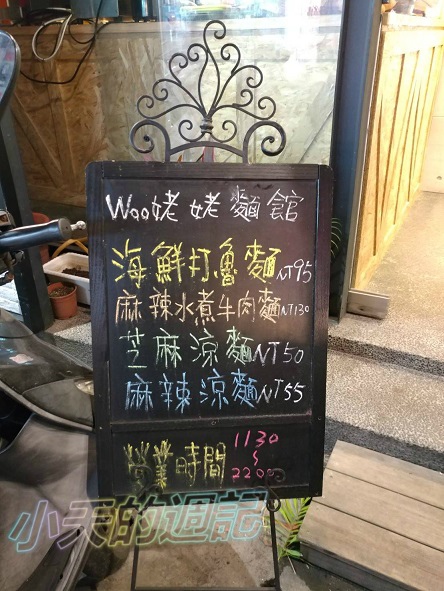 Woo姥姥麵館
海鮮打魯麵NT95
麻辣水煮牛肉麵NT130
芝麻涼麵NT50
麻辣涼麵NT55
營業時間 1130
~
2200
小天的週記